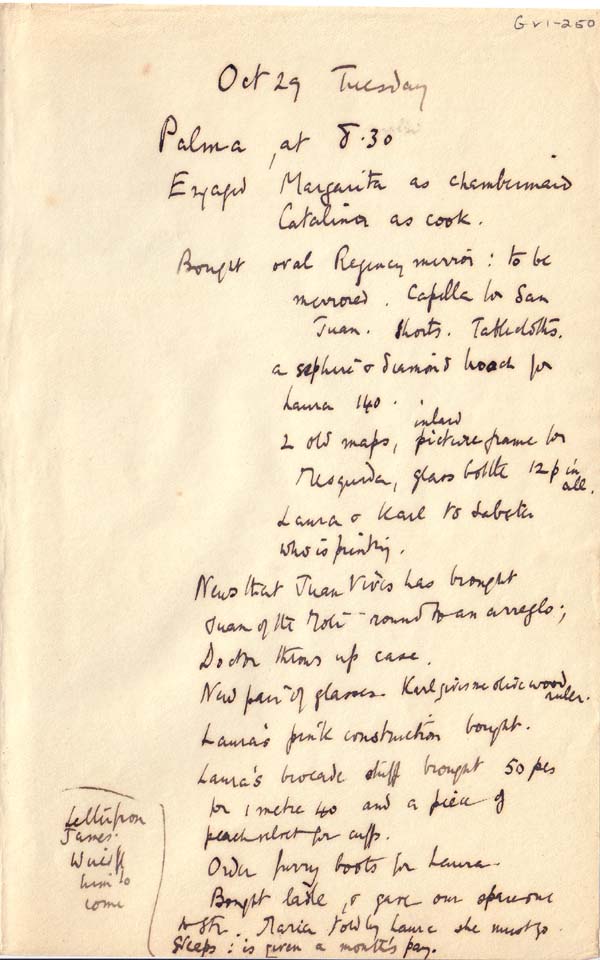 GV1-250
Oct 29 Tuesday
Palma, at 8.30
Engaged Margarita as chambermaid
Catalina as cook.
Bought oval Regency mirror: to be
mirrored. Capilla for San
Juan. Shorts. Tablecloths.
a saphire & diamond broach for
Laura 140.
inlaid
2 old maps, picture frame for
Mesquida, glass bottle 12 p in
all.
Laura & Karl to Sabater
who is printing.
News that Juan Vives has brought
Juan of the round to an arreglo;
Doctor throws up case.
New pair of glasses. Karl gives me olive wood
ruler.
Laura's pink construction bought.
Laura's brocade stuff brought 50 pes
for 1 metre 40 and a piece of
peach velvet for cuffs.
Order furry boots for Laura.
Bought ladle, & gave our spare one
to Maria told by Laura she must go
: is given a month's pay.
Letter from
James.
Write
him to
come